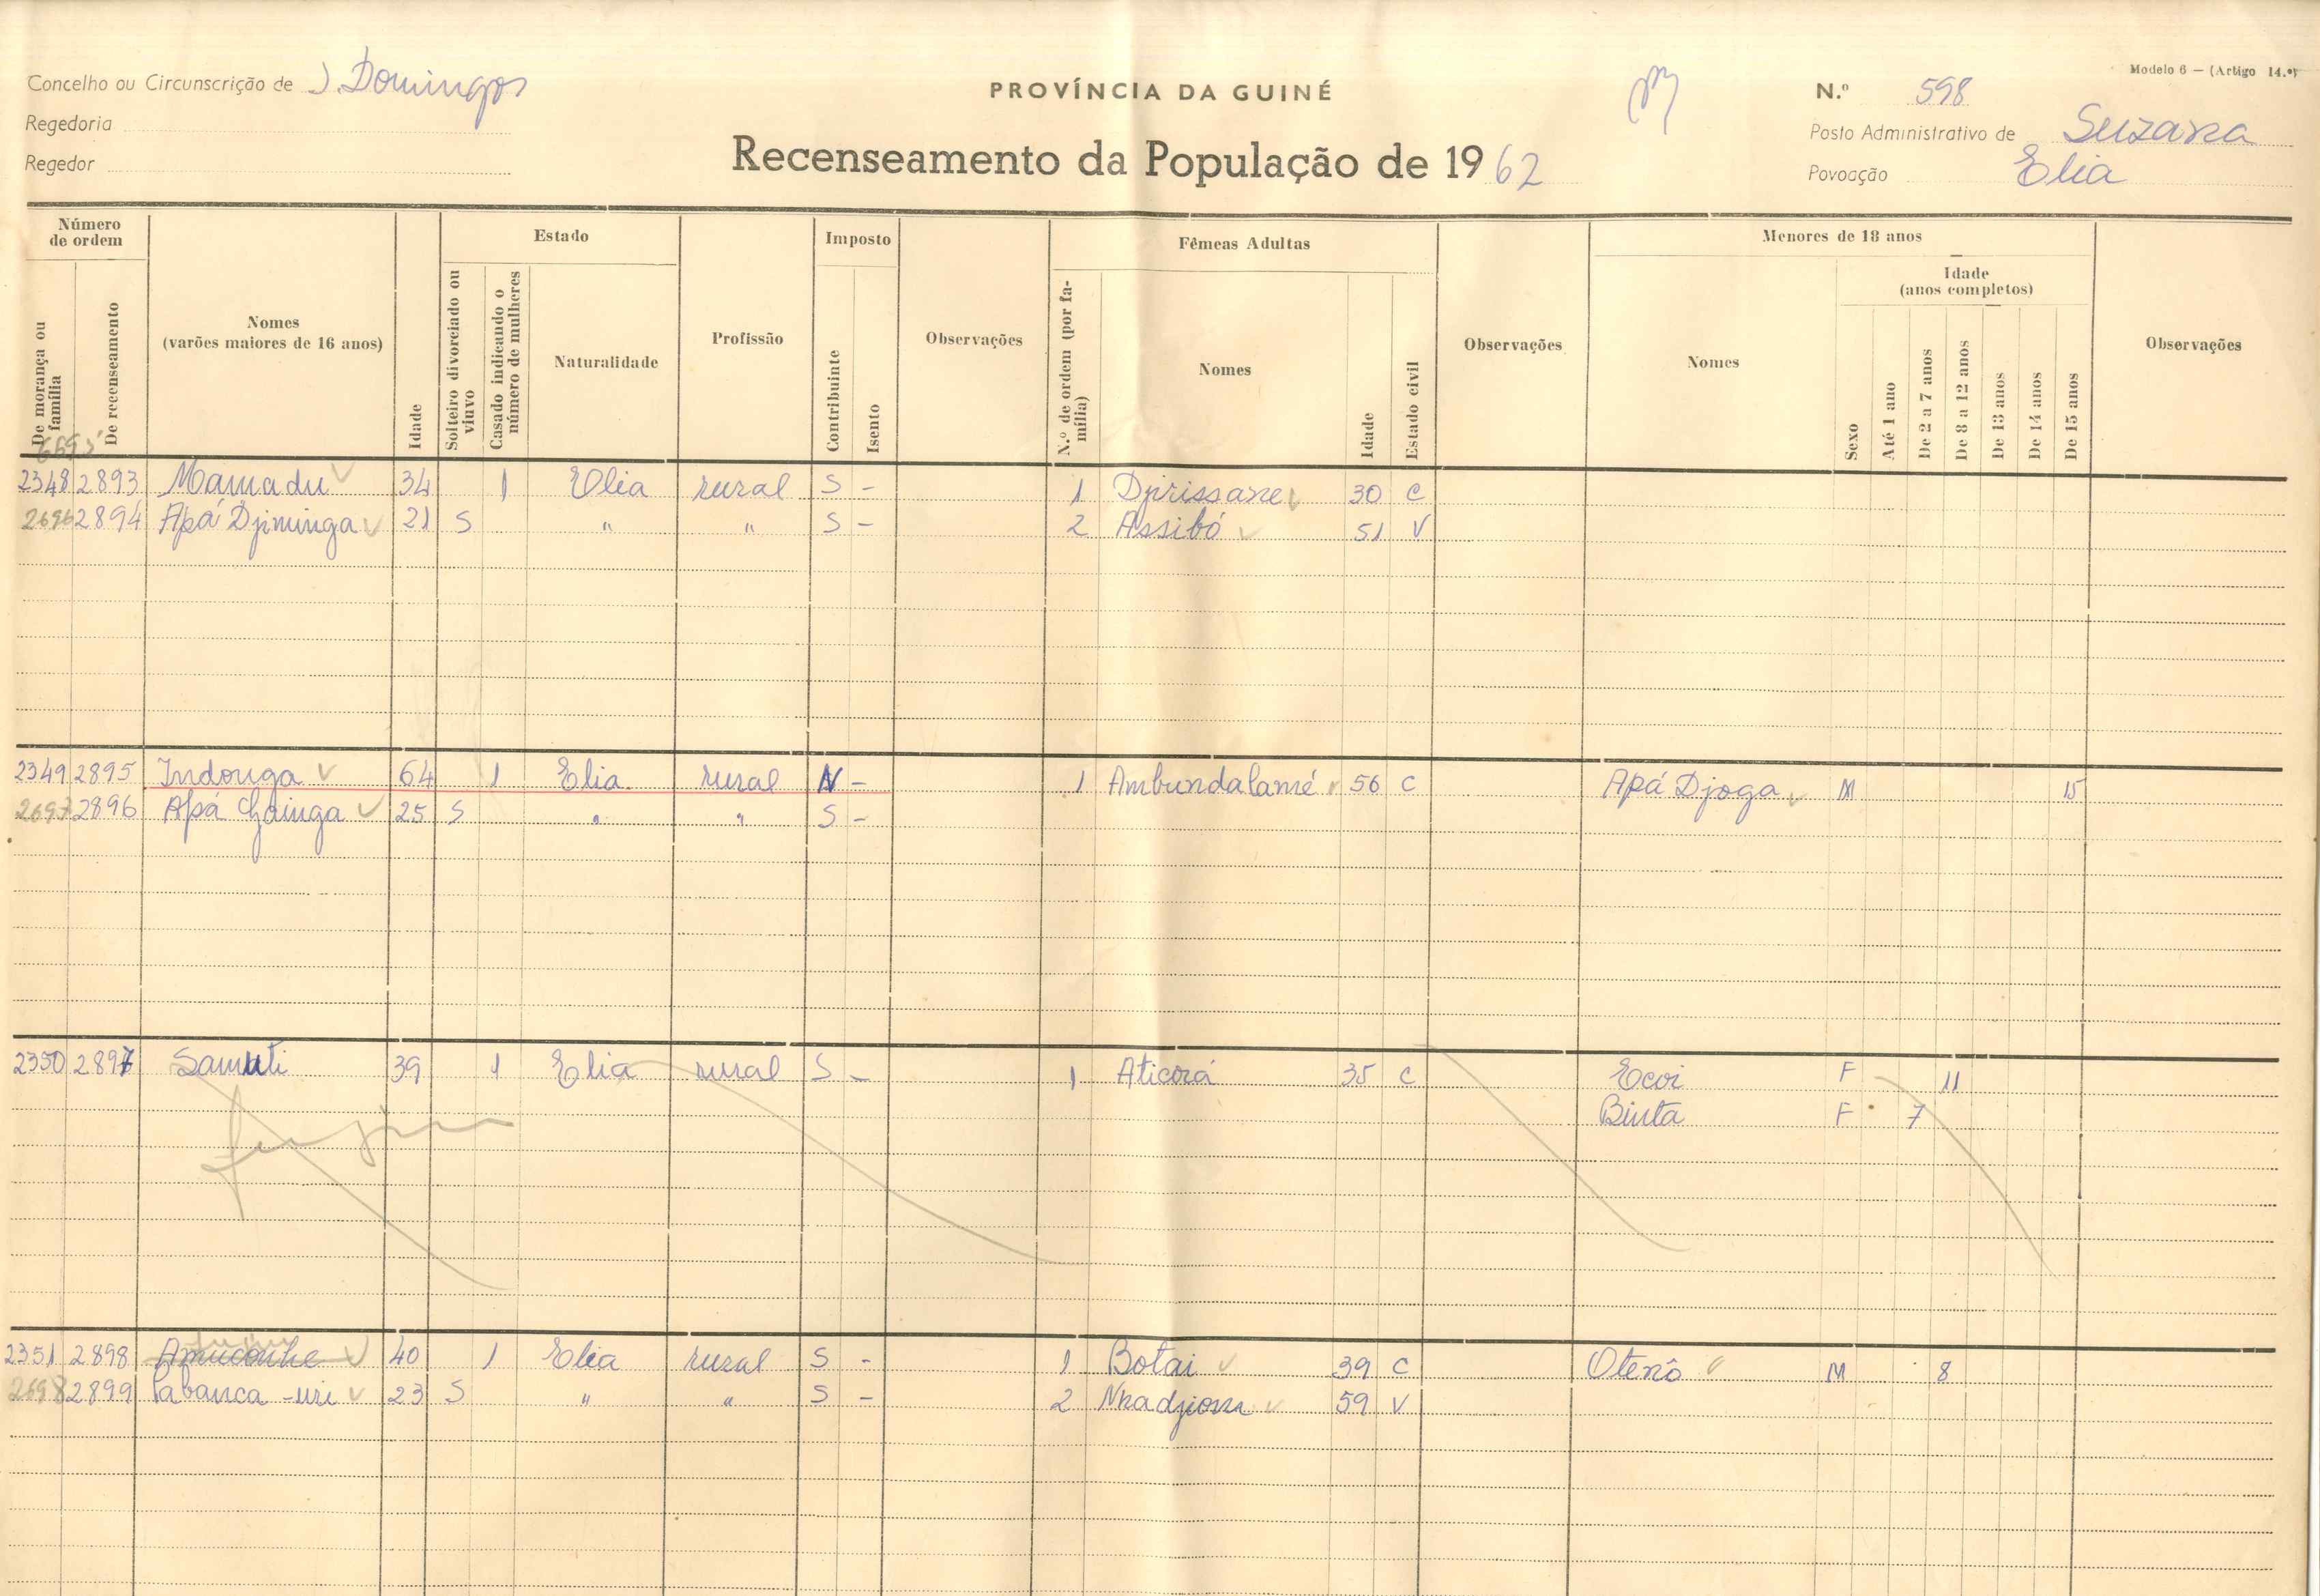 Modelo 6 — (Artigo 14.º)
Concelho ou Circunscrição de S. Domingos
PROVÍNCIA DA GUINÉ
N.º 598
Regedoria
Posto Administrativo de Suzana
Regedor
Recenseamento da População de 1962
Povoação Elia
Número de ordem
Estado
Imposto
Fêmeas Adultas
Menores de 18 anos
De morança ou família
De recenseamento
Nomes
(varões maiores de 16 anos)
Idade
Solteiro divorciado ou viuvo
Casado indicando o número de mulheres
Naturalidade
Profissão
Contribuinte
Isento
Observações
N.º de ordem (por família)
Nomes
Idade
Estado civil
Observações
Nomes
Sexo
Idade
(anos completos)
Até 1 ano
De 2 a 7 anos
De 8 a 12 anos
De 13 anos
De 14 anos
De 15 anos
Observações
2348 2893 Mamadu 34 1 Elia rural S - 1 Djirissane 30 C
2696 2894 Apá Djiminga 21 S " " S - 2 Assibó 51 V
2349 2895 Indonga 64 1 Elia rural N - 1 Ambundalamé 56 C Apá Djoga M 15
2697 2896 Apá 25 S " " S -
2350 2897 Samuti 39 1 Elia rural S - 1 Aticorá 35 C Ecoi F 11
Binta F 7
2351 2898 Amuconhe 40 1 Elia rural S - 1 Botai 39 C Otenô M 8
2698 2899 Pabanca-uri 23 S " " S - 2 59 V